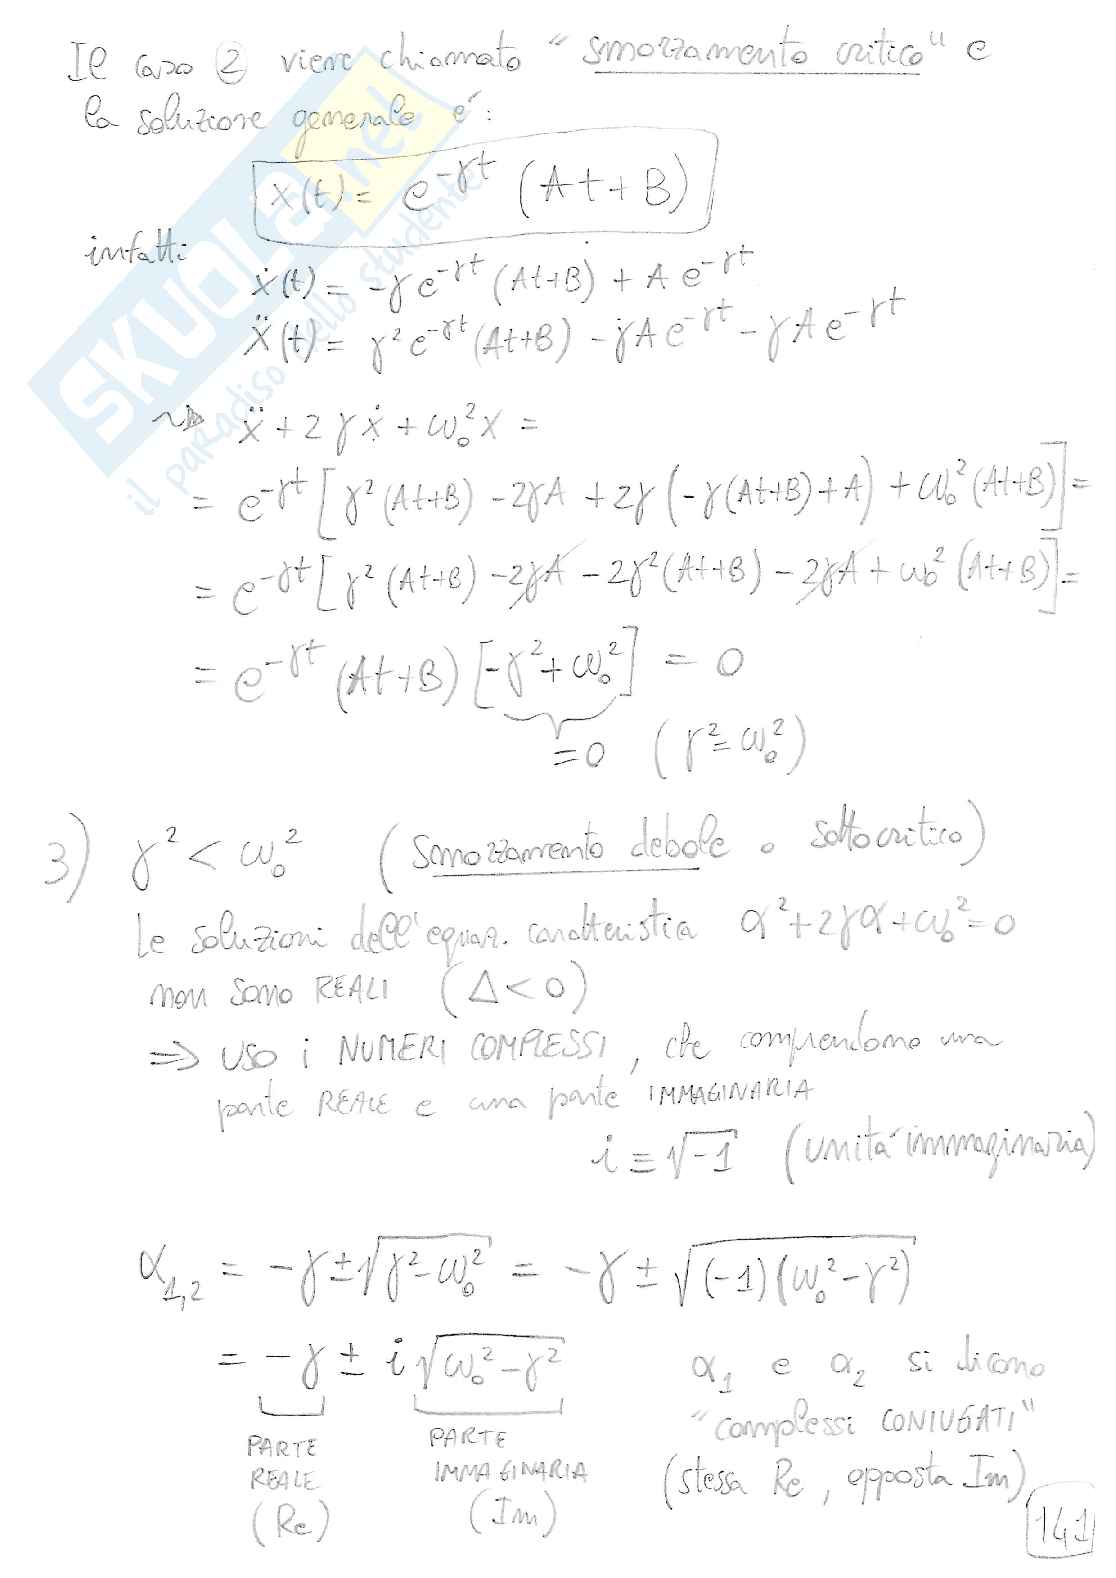 Il caso ② viene chiamato "smorzamento critico" e
la soluzione generale è:
x(t) = e^{-γt} (At+B)
infatti
ẋ(t) = -γe^{-γt} (At+B) + A e^{-γt}
ẍ(t) = γ²e^{-γt}(At+B) - γAe^{-γt} - γAe^{-γt}
⇝ ẍ + 2γẋ + ω₀²x =
= e^{-γt} [γ²(At+B) - 2γA + 2γ(-γ(At+B)+A) + ω₀²(At+B)] =
= e^{-γt} [γ²(At+B) - 2γA - 2γ²(At+B) - 2γA + ω₀²(At+B)] =
= e^{-γt} (At+B) [-γ²+ω₀²] = 0
=0 (γ²=ω₀²)
3) γ² < ω₀² (Smorzamento debole o sottocritico)
Le soluzioni dell'equaz. caratteristica α²+2γα+ω₀²=0
non sono REALI (Δ<0)
⇒ USO i NUMERI COMPLESSI, che comprendono una
parte REALE e una parte IMMAGINARIA
i ≡ √-1 (unità immaginaria)
α₁,₂ = -γ ± √(γ²-ω₀²) = -γ ± √((-1)(ω₀²-γ²))
= -γ ± i √(ω₀²-γ²) α₁ e α₂ si dicono
"complessi CONIUGATI"
(stessa Re, opposta Im)
PARTE
REALE
(Re)
PARTE
IMMAGINARIA
(Im)
141
SKUOLA.net
il paradiso dello studente